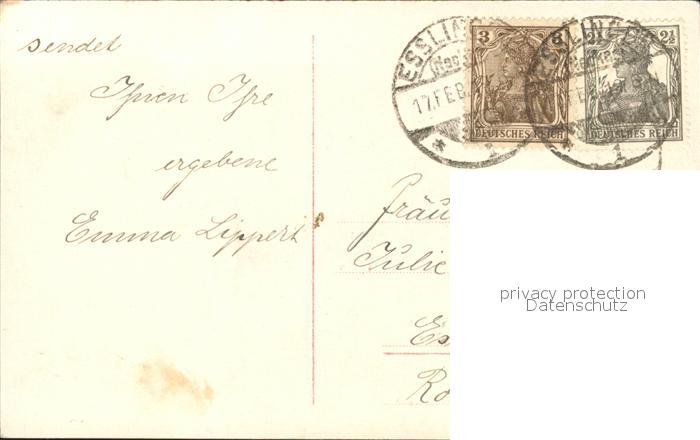 sendet
Ihnen Ihre
ergebene
Emma Lippert
ESSLINGEN
(Neckar)
17.FEB.
* 1
3 3
DEUTSCHES REICH
ESSLINGEN
* 1
2½ 2½
DEUTSCHES REICH
Fräu
Julie
Es
Ro
privacy protection
Datenschutz